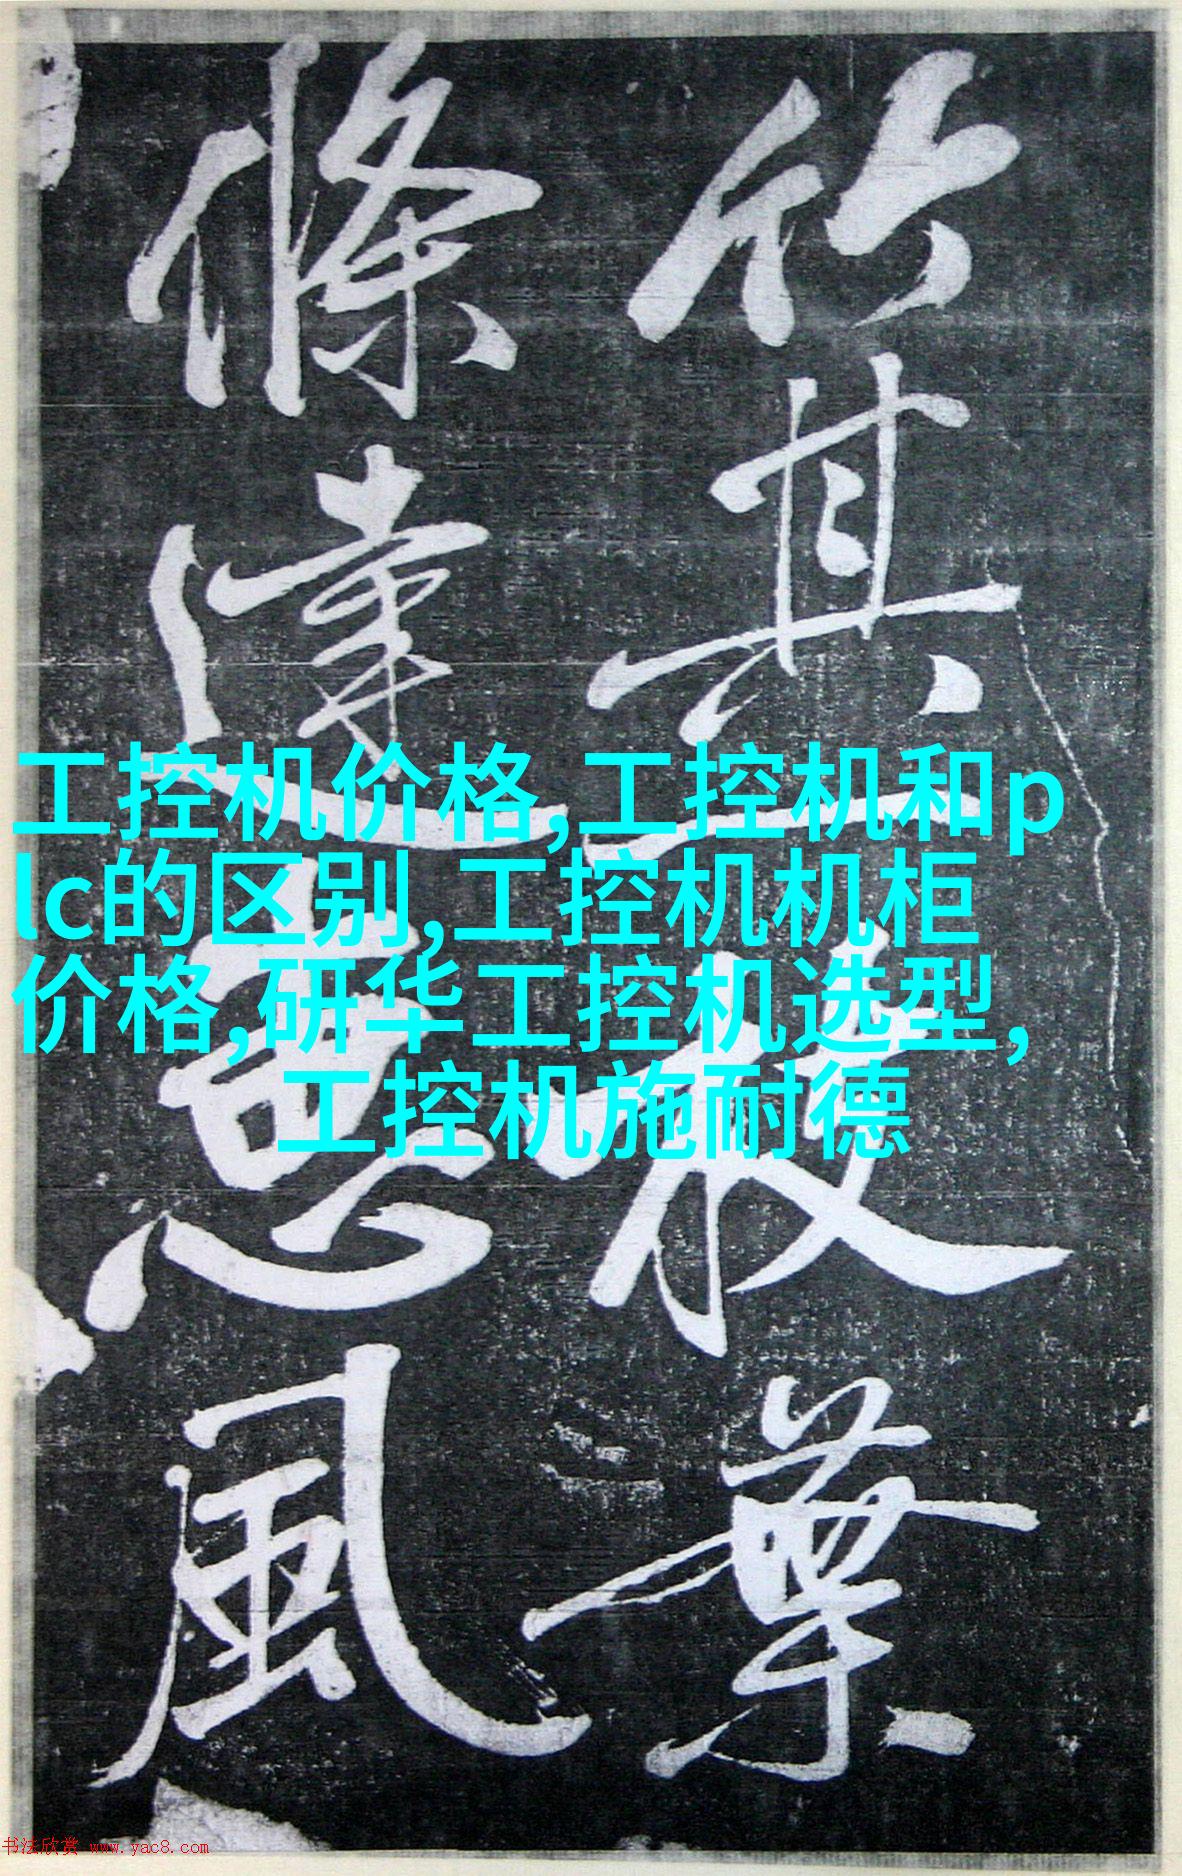 竹其枝葉
條達惠風
工控机价格,工控机和p
lc的区别,工控机机柜
价格,研华工控机选型,
工控机施耐德
书法欣赏 www.yac8.com